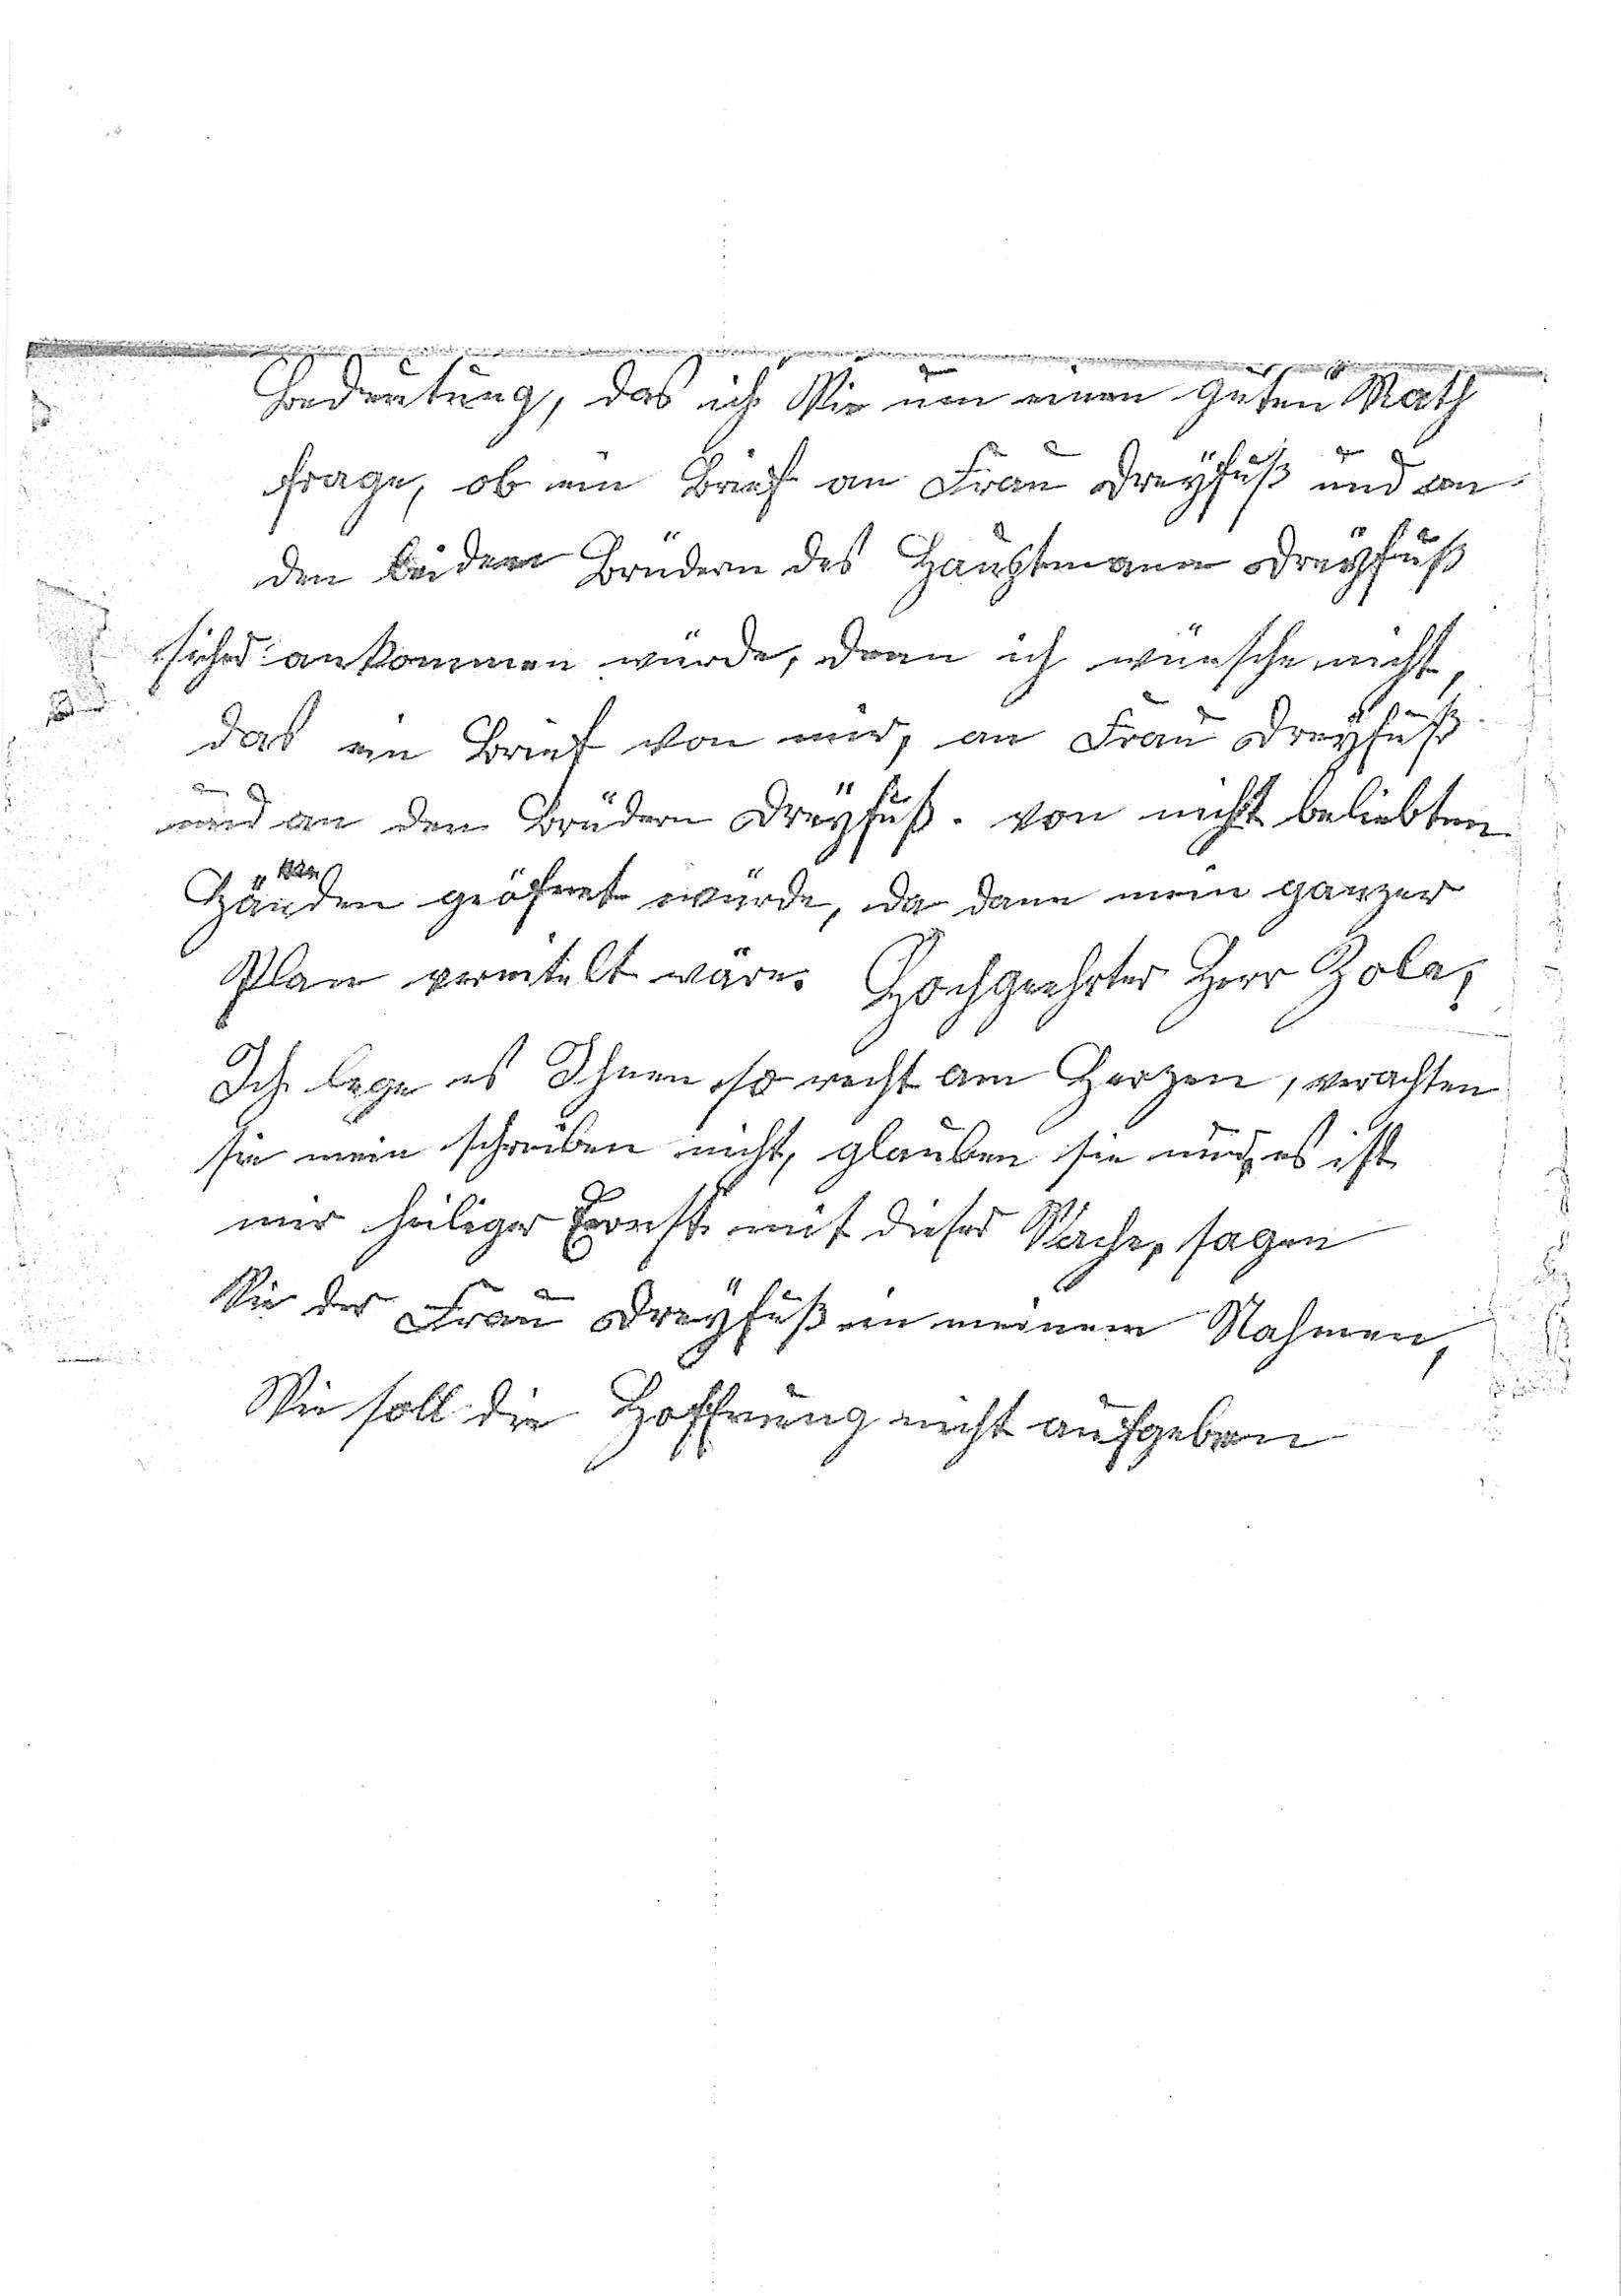 Bedeutung, das ich Sie um einen guten Rath
frage, ob ein Brief an Frau Dreyfuß und an
den beiden Brüdern des Hauptmann Dreyfuß
sicher ankommen würde, denn ich wünsche nicht,
das ein Brief von mir, an Frau Dreyfuß
und an den Brüdern Dreyfuß. von nicht beliebten
Händen geöfnet würde, da dann mein ganzer
Plan vereitelt wäre. Hochgeehrter Herr Zola!
Ich lege es Ihnen so recht am Herzen, verachten
sie mein schreiben nicht, glauben sie nur, es ist
mir heiliger Ernst mit dieser Sache, sagen
Sie der Frau Dreyfuß in meinem Nahmen,
Sie soll die Hoffnung nicht aufgeben